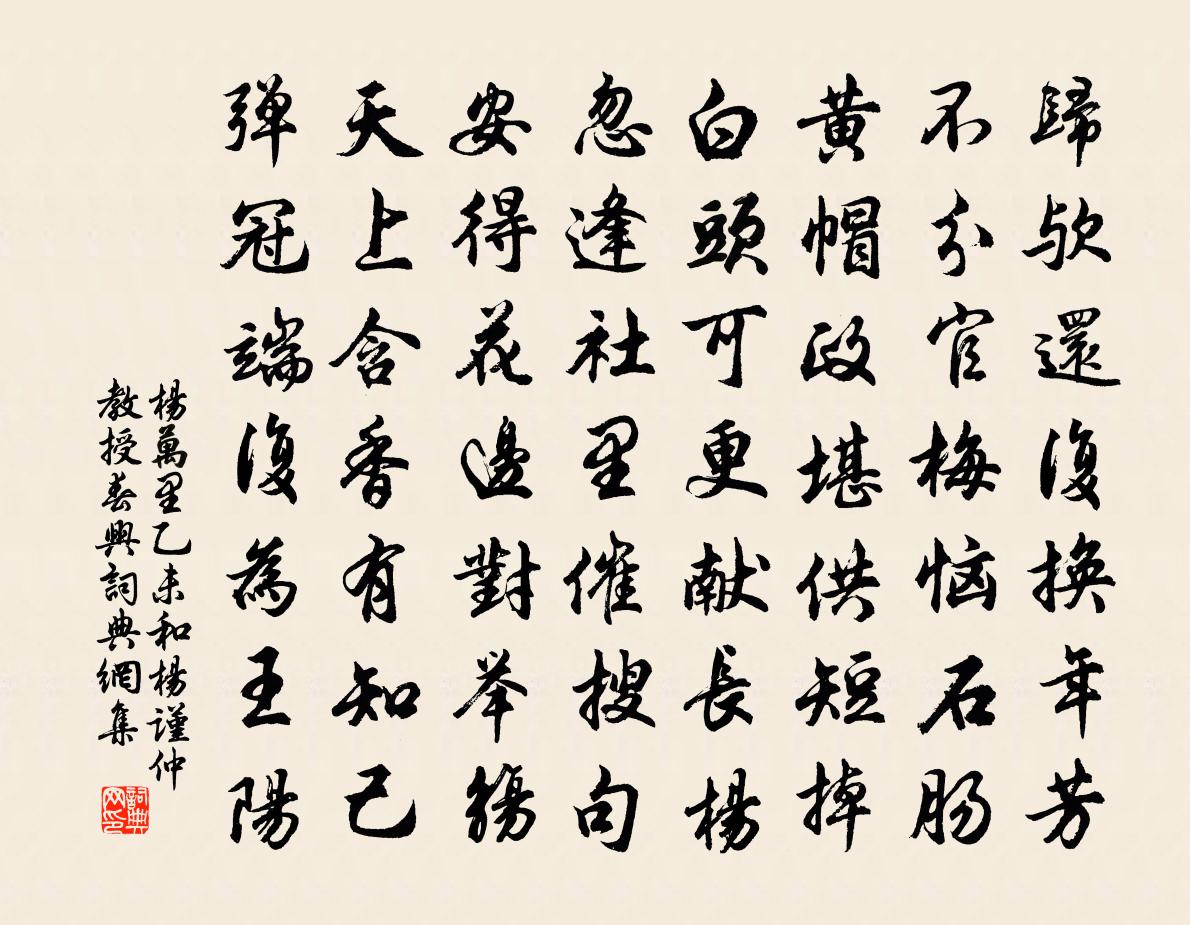 歸歟還復換年芳
不分官梅惱石腸
黄帽政堪供短掉
白頭可更献長楊
忽逢社里催搜句
安得花邊對举觴
天上含香有知己
弹冠端復為王陽
楊萬里乙未和楊謹仲
教授春興詞典網集
詞典网印